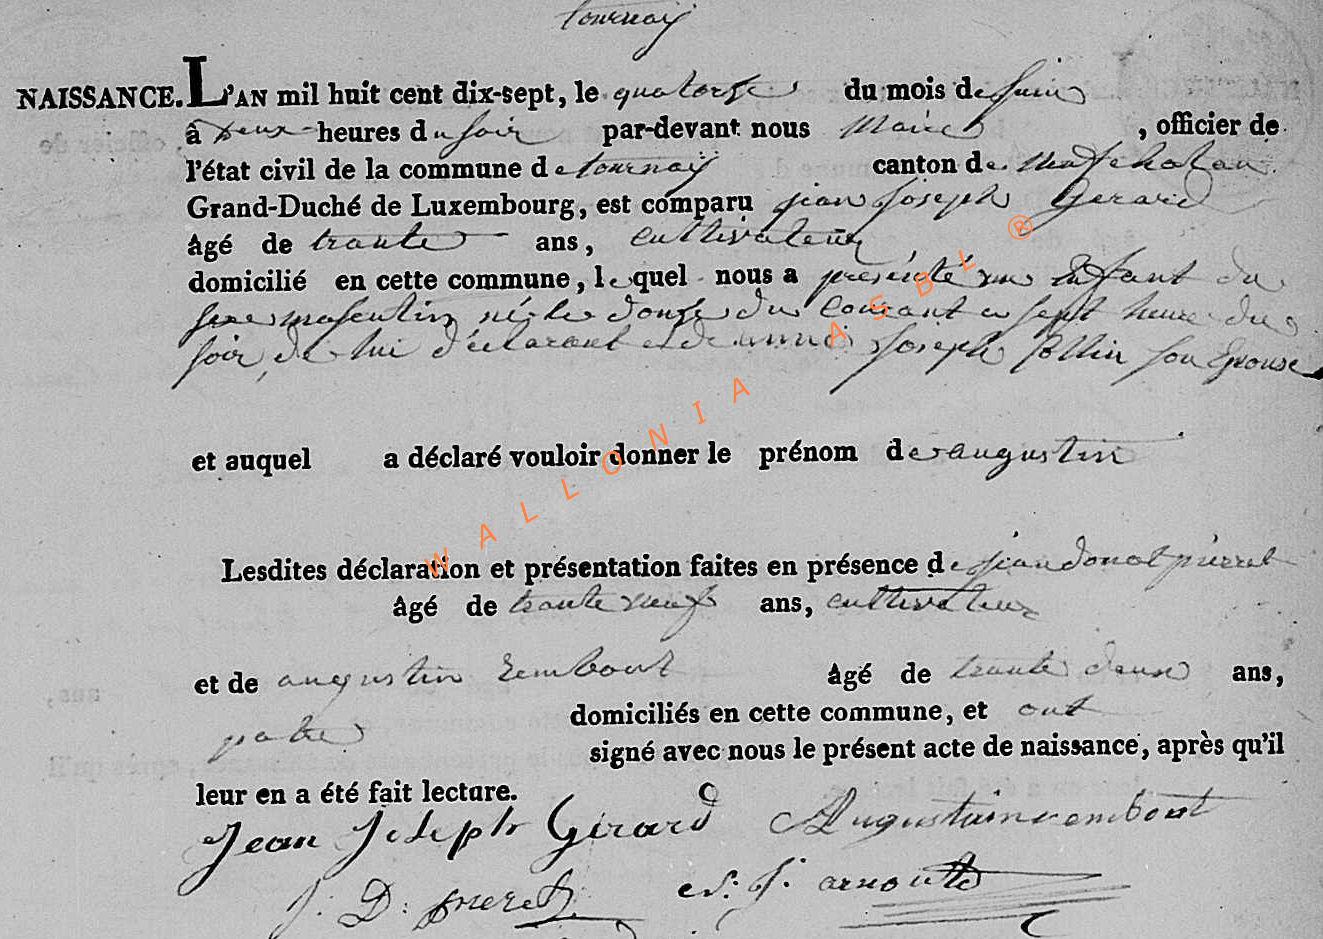 tournay
NAISSANCE. L'AN mil huit cent dix-sept, le quatorze du mois de juin
à deux heures du soir par-devant nous Maire, officier de
l'état civil de la commune de tournay canton de neufchateau
Grand-Duché de Luxembourg, est comparu jean joseph Gerard
âgé de trante ans, cultivateur
domicilié en cette commune, lequel nous a presenté un Enfant du
sexe masculin né le douze du courant a sept heure du
soir, de lui déclarant et de joseph son Epouse
et auquel a déclaré vouloir donner le prénom de augustin
Lesdites déclaration et présentation faites en présence de jean donat pierret
âgé de trante neuf ans, cultivateur
et de augustin rembout âgé de trante deux ans,
domiciliés en cette commune, et ont
patre
signé avec nous le présent acte de naissance, après qu'il
leur en a été fait lecture.
Jean Joseph Girard Augustain rembout
J: D: pieret J. arnould
WALLONIA ASBL ®